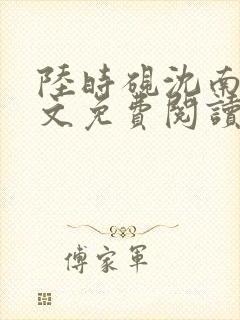 陸時硯沈南
文免費閱讀
傅家軍